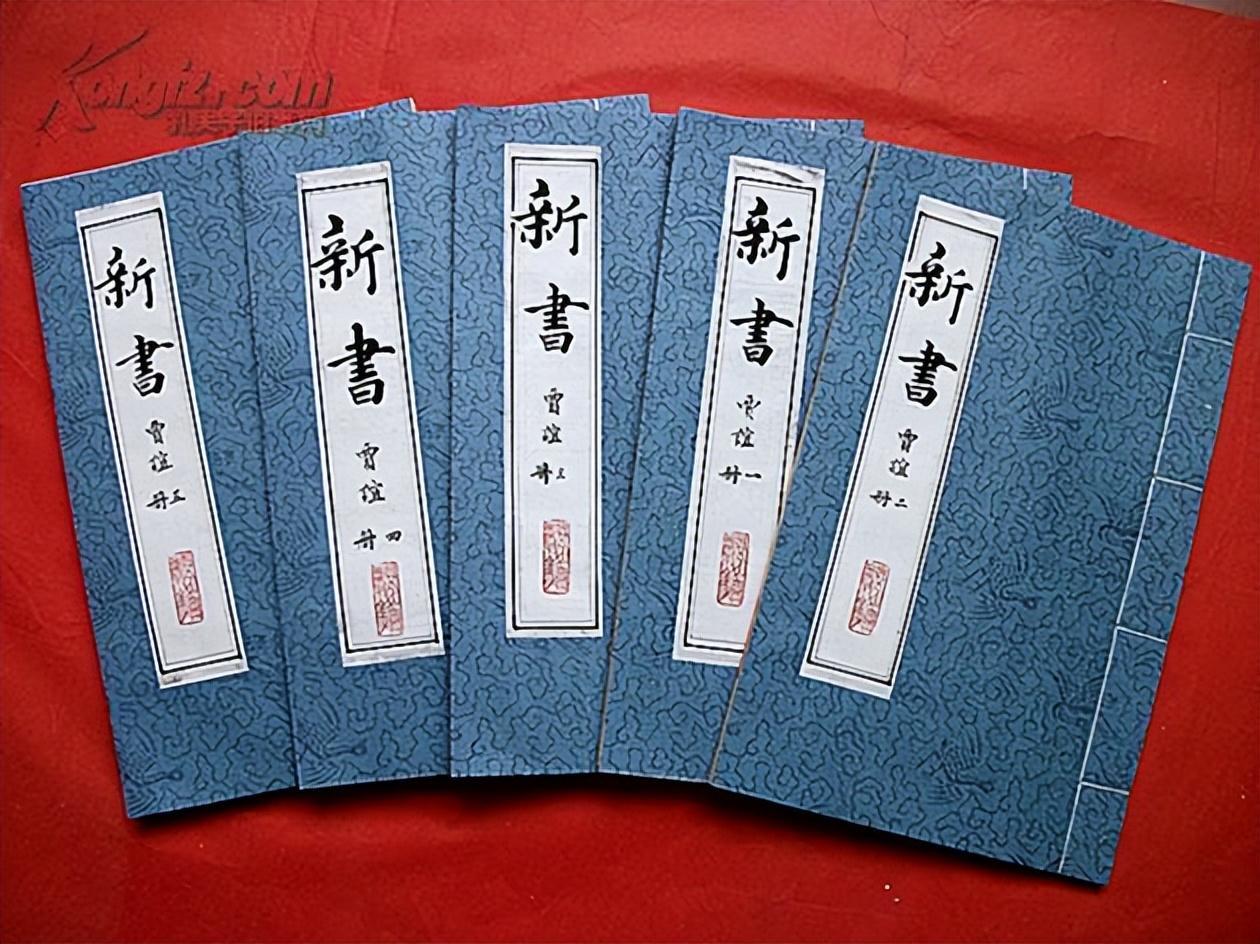 Kongfz.com
孔夫子旧书网
新書
賈誼
册五
新書
賈誼
册四
新書
賈誼
册三
新書
賈誼
册一
新書
賈誼
册二